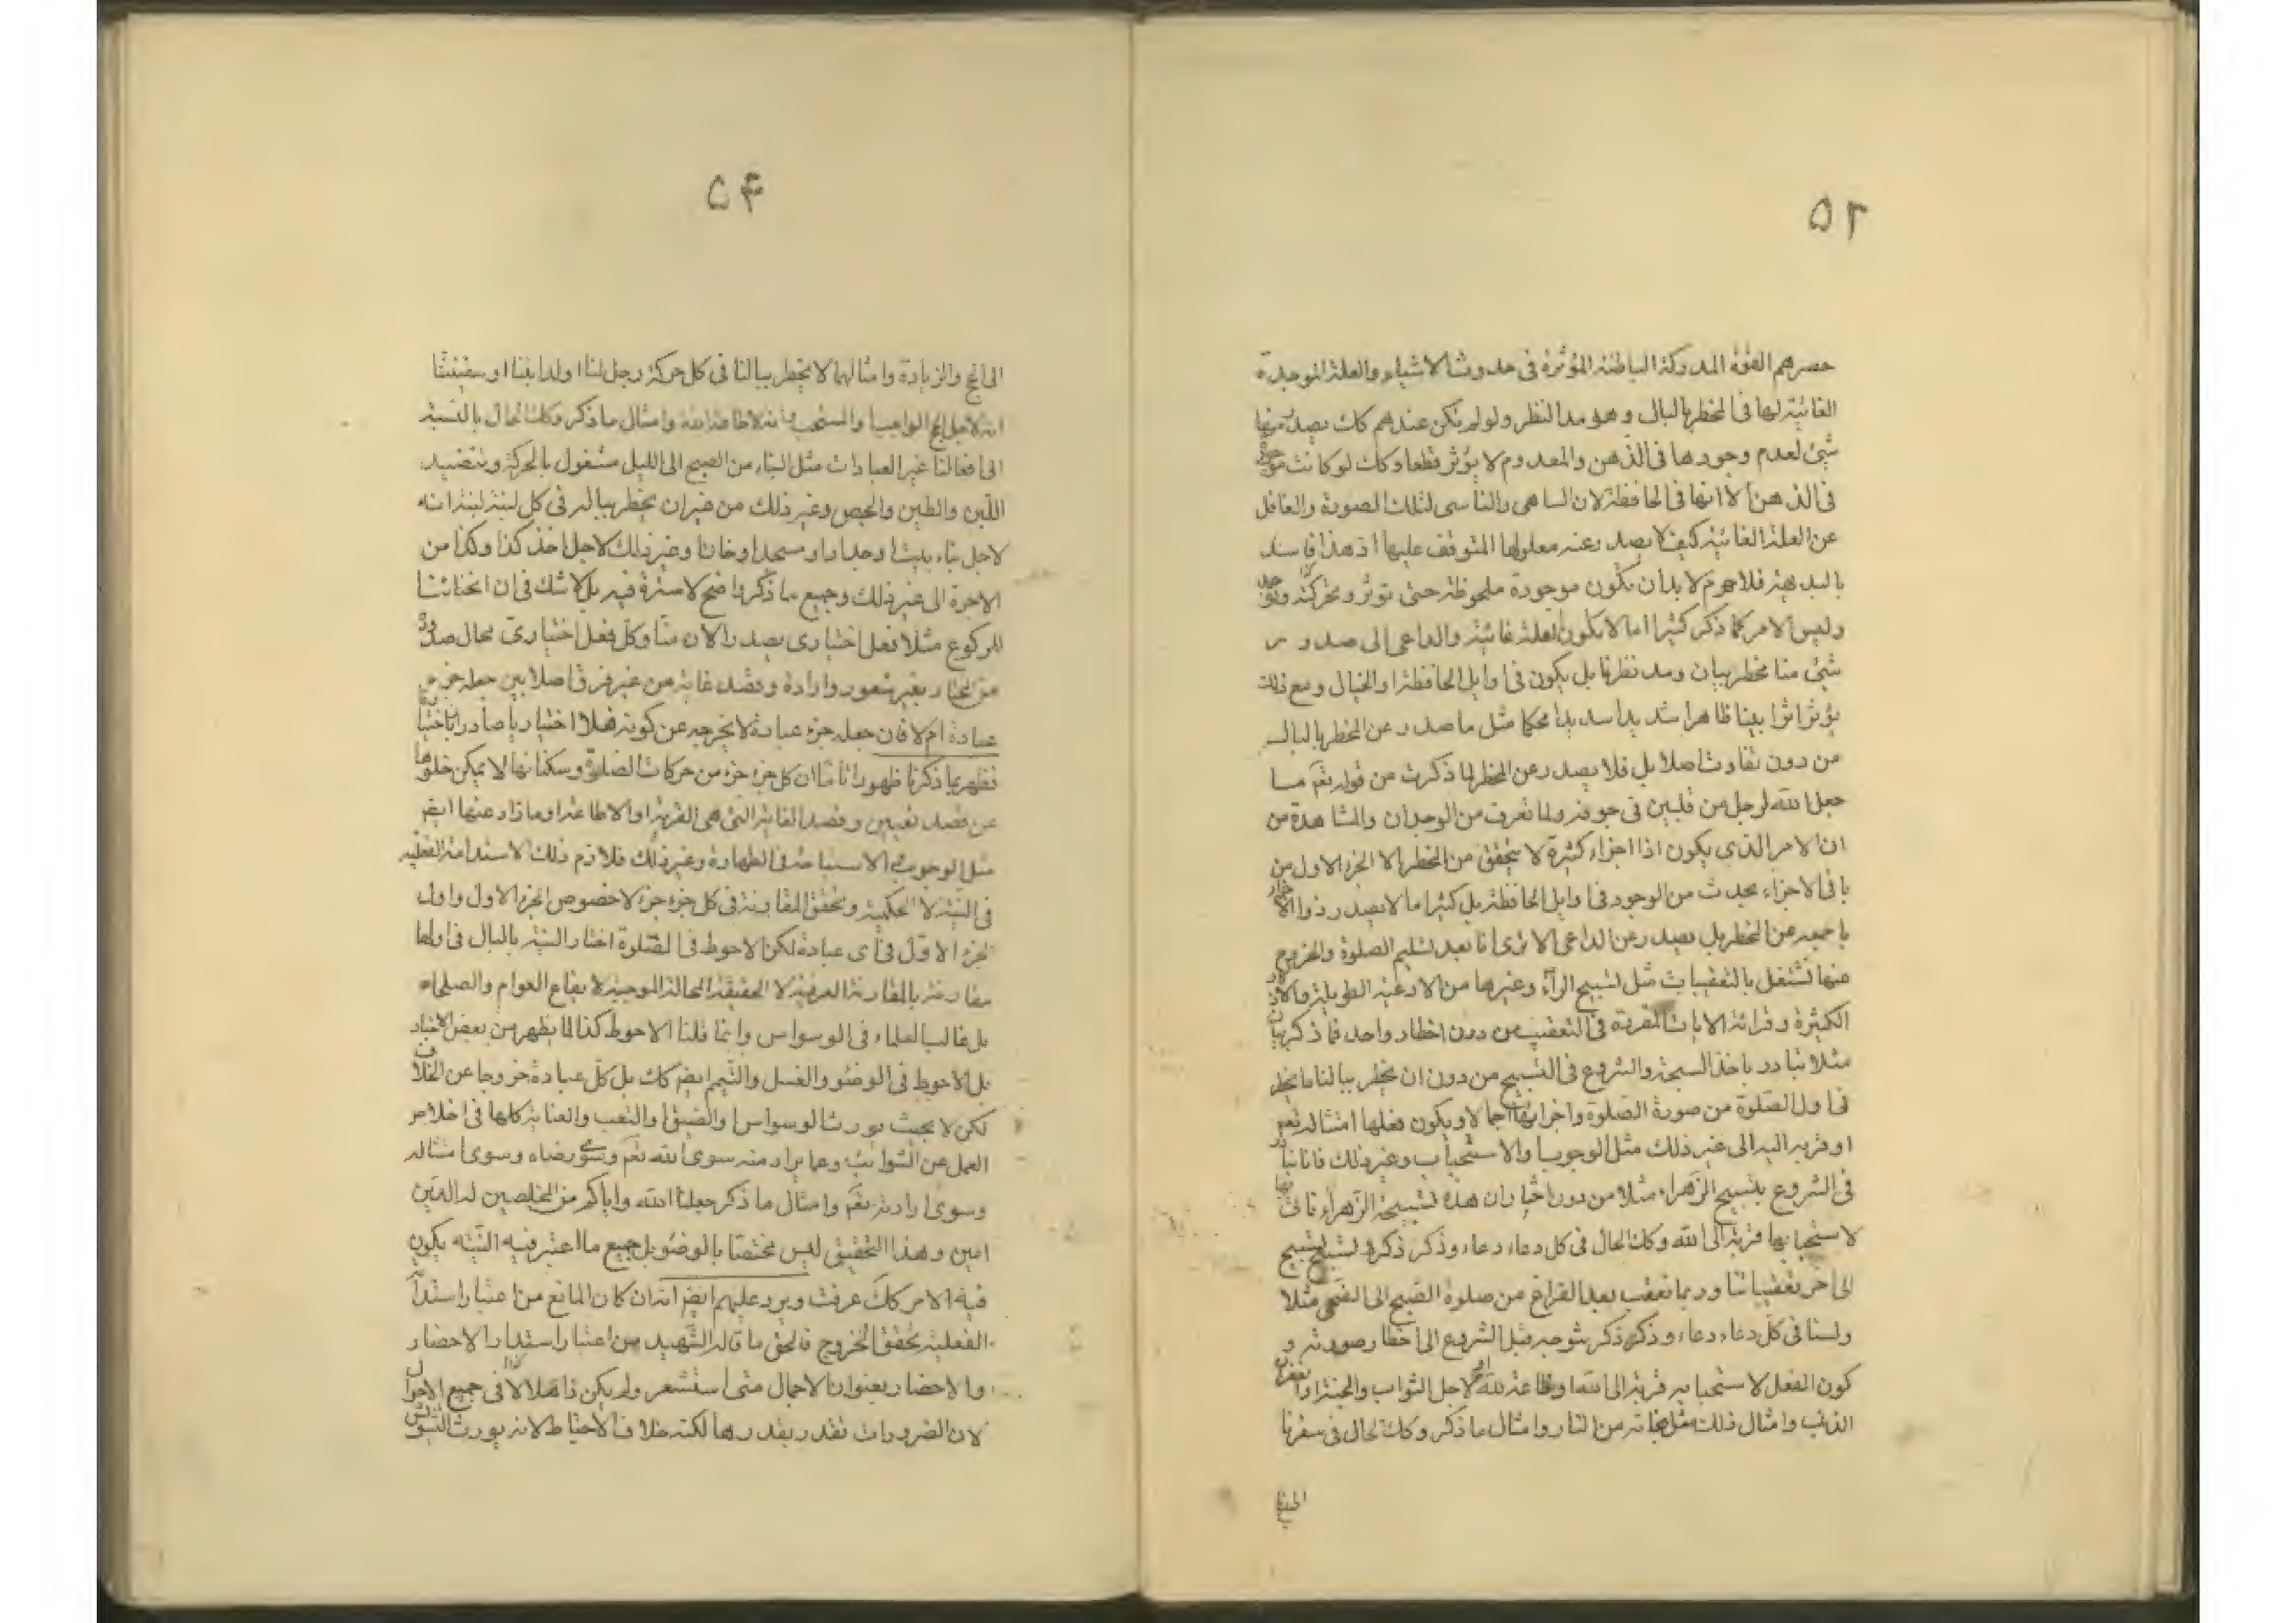 ۵۲
حصرهم القوة المدركة الباطنة المؤثرة فى حدوث الاشياء والعلة الموجدة
الغائية لها فى المخطر بالبال وهو مد النظر ولو لم تكن عندهم كك يصدر منها
شئ لعدم وجودها فى الذهن والمعدوم لا يؤثر قطعا وكك لو كانت موجودة
فى الذهن الا انها فى الحافظة لان الساهى والناسى لتلك الصورة والغافل
عن العلة الغائية كيف لا يصدر عنه معلولها المتوقف عليها اذ هذا فاسد
بالبديهة فلا جرم لا بد ان تكون موجودة ملحوظة حتى تؤثر وتحركه
وليس الامر كما ذكر كثيرا اما لا يكون العلة غائية والداعى الى صدور
شئ منا مخطر ببال ومد نظرنا بل يكون فى اوايل الحافظة او الخيال ومع ذلك
يؤثر اثرا بينا ظاهرا شديدا سديدا محكما مثل ما صدر عن المخطر بالبال
من دون تفاوت اصلا بل فلا يصدر عن المخطر لما ذكرت من قوله تعم ما
جعل الله لرجل من قلبين فى جوفه ولما تعرف من الوجدان والمشاهدة من
ان الامر الذى يكون اذا اجزاء كثيرة لا يتحقق من المخطر الا الجزء الاول من
باقى الاجزاء يحدث من الوجود فى اوايل الحافظة بل كثيرا ما لا يصدر ذو الاجزاء
باجمعه عن المخطر بل يصدر عن الداعى الا ترى انا بعد تسليم الصلوة والخروج
منها نشتغل بالتعقيبات مثل تسبيح الزهراء وغيرها من الادعية الطويلة والاذكار
الكثيرة وقرائة الايات المقررة فى التعقيب من دون اخطار واحد مما ذكر بان
مثلا نبادر باخذ السبحة والشروع فى التسبيح من دون ان يخطر ببالنا ما يخطر
فى اول الصلوة من صورة الصلوة واجزائها اجمالا ويكون فعلها امتثاله تعم
او قربة اليه الى غير ذلك مثل الوجوب والاستحباب وغير ذلك فانا نبادر
فى الشروع بتسبيح الزهراء مثلا من دون اخطار ان هذه تسبيحة الزهراء
لاستحبابها قربة الى الله وكك الحال فى كل دعاء دعاء وذكر ذكر وتسبيح تسبيح
الى اخر تعقيباتنا وربما نعقب بعد الفراغ من صلوة الصبح الى الضحى مثلا
ولسنا فى كل دعاء دعاء وذكر ذكر بتوجه قبل الشروع الى اخطار صورته و
كون الفعل لاستحبابه قربة الى الله او طاعة لله او لاجل الثواب والجنة او
الذنب وامثال ذلك مثل نجاته من النار وامثال ما ذكر وكك الحال فى سفرنا
۵۴
الى الحج والزيارة وامثالهما لا يخطر ببالنا فى كل حركة رجل لنا او لدابتنا او سفينتنا
انه لاجل الحج الواجب او المستحب وامثال ما ذكر وكك الحال بالنسبة
الى افعالنا غير العبادات مثل البناء من الصبح الى الليل مشغول بالحركة وتنضيد
اللبن والطين والجص وغير ذلك من غير ان يخطر بباله فى كل لبنة لبنة انه
لاجل بناء بيت او جدار او مسجد او خان او غير ذلك لاجل اخذ كذا وكذا من
الاجرة الى غير ذلك وجميع ما ذكر واضح لا سترة فيه بل لا شك فى ان انحنائنا
للركوع مثلا فعل اختيارى يصدر الان منا وكل فعل اختيارى محال صدوره
من المختار بغير شعور وارادة وقصد غاية من غير فرق اصلا بين جعله جزء
عبادة ام لا فان جعله جزء عبادة لا يخرجه عن كونه فعلا اختياريا صادرا باختيار
فظهر بما ذكرنا ظهورا تاما ان كل جزء جزء من حركات الصلوة وسكناتها لا يمكن خلوها
عن قصد تعيين وقصد الغاية التى هى القربة او الاطاعة او ما زاد عنها ايضا
مثل الوجوب او الاستباحة فى الطهارة وغير ذلك فلازم ذلك الاستدامة الفعلية
فى النية لا الحكمية ويحقق المقارنة فى كل جزء جزء لا خصوص الجزء الاول واول
الجزء الاول فى اى عبادة لكن الاحوط فى الصلوة اخطار النية بالبال فى اولها
مقارنة بالمقارنة العرفية لا الحقيقة المحالة الموجبة لايقاع العوام والصلحاء
بل غالب العلماء فى الوسواس وانما قلنا الاحوط كذا لما يظهر من بعض الاخبار
بل الاحوط فى الوضوء والغسل والتيمم ايضا كك بل كل عبادة خروجا عن الخلاف
لكن لا بحيث يورث الوسواس والضيق والتعب والعناية كلها فى اخلاص
العمل عن الشوائب وعما يراد منه سوى الله تعم وسوى رضاه وسوى امتثاله
وسوى ارادته تعم وامثال ما ذكر جعلنا الله واياكم من المخلصين له الدين
امين وهذا التحقيق ليس مختصا بالوضوء بل جميع ما اعتبر فيه النية يكون
فيه الامر كك عرفت ويرد عليهم ايضا انه ان كان المانع من اعتبار استدامة
الفعلية تحقق الخروج فالحق ما قاله الشهيد من اعتبار استمرار الاحضار
والاحضار بعنوان الاجمال متى استشعر ولم يكن ذاهلا لا فى جميع الاحوال
لان الضرورات تقدر بقدرها لكنه خلاف الاحتياط لانه يورث التشويش